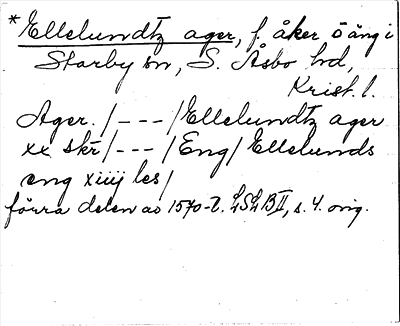 *Ellelundtz ager, f. åker ö äng i
Starby sn, S. Åsbo hd,
Krist. l.
Ager. /---/ Ellelundtz ager
xx skr /---/ Eng / Ellelunds
eng xiiij les /
förra delen av 1570-t. LSLB II, s. 4. orig.